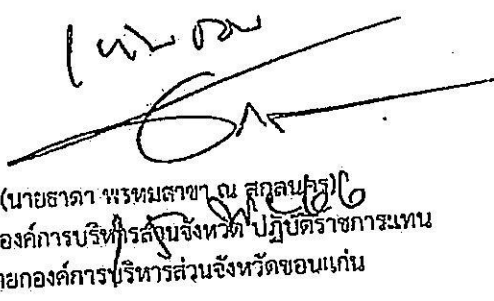 เห็นชอบ
(นายธาดา พรหมสาขา ณ สกลนคร)
องค์การบริหารส่วนจังหวัด ปฏิบัติราชการแทน
ยกองค์การบริหารส่วนจังหวัดขอนแก่น